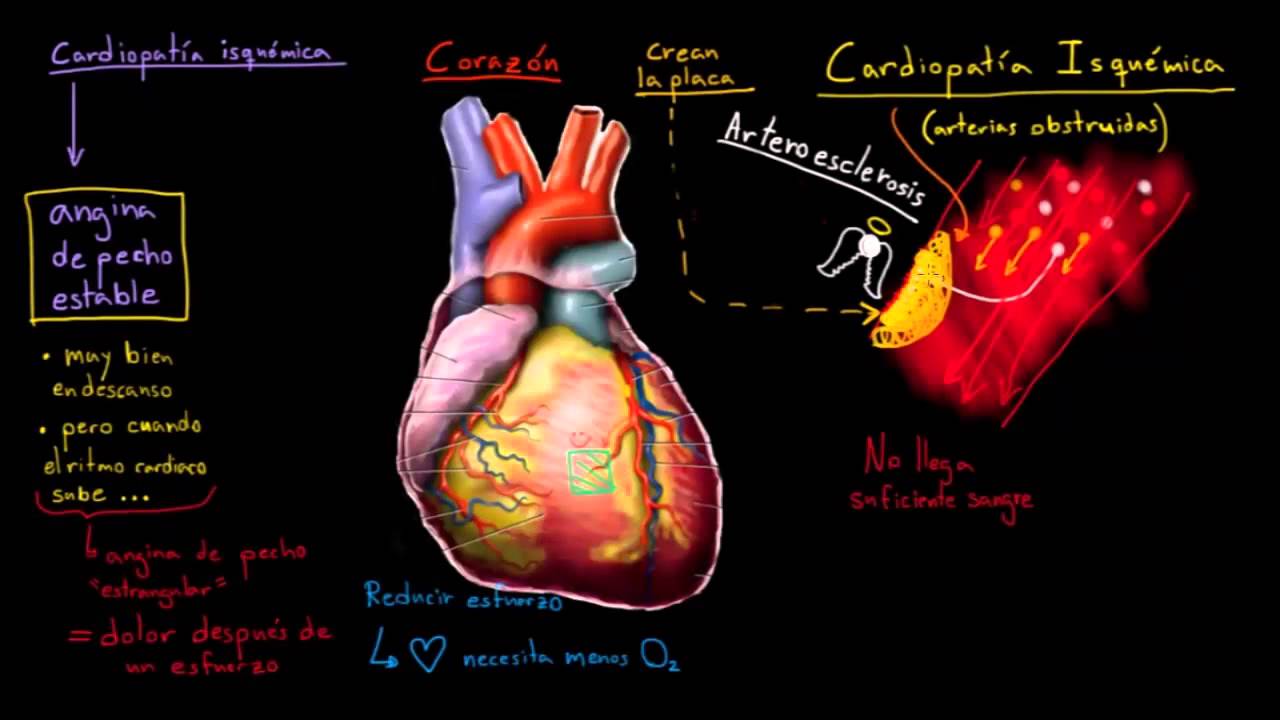 Cardiopatía isquémica
angina
de pecho
estable
• muy bien
en descanso
• pero cuando
el ritmo cardiaco
sube ...
angina de pecho
"estrangular"
= dolor después de
un esfuerzo
Corazón
Reducir esfuerzo
necesita menos O₂
Crean
la placa
Arteroesclerosis
Cardiopatía Isquémica
(arterias obstruidas)
No llega
suficiente sangre